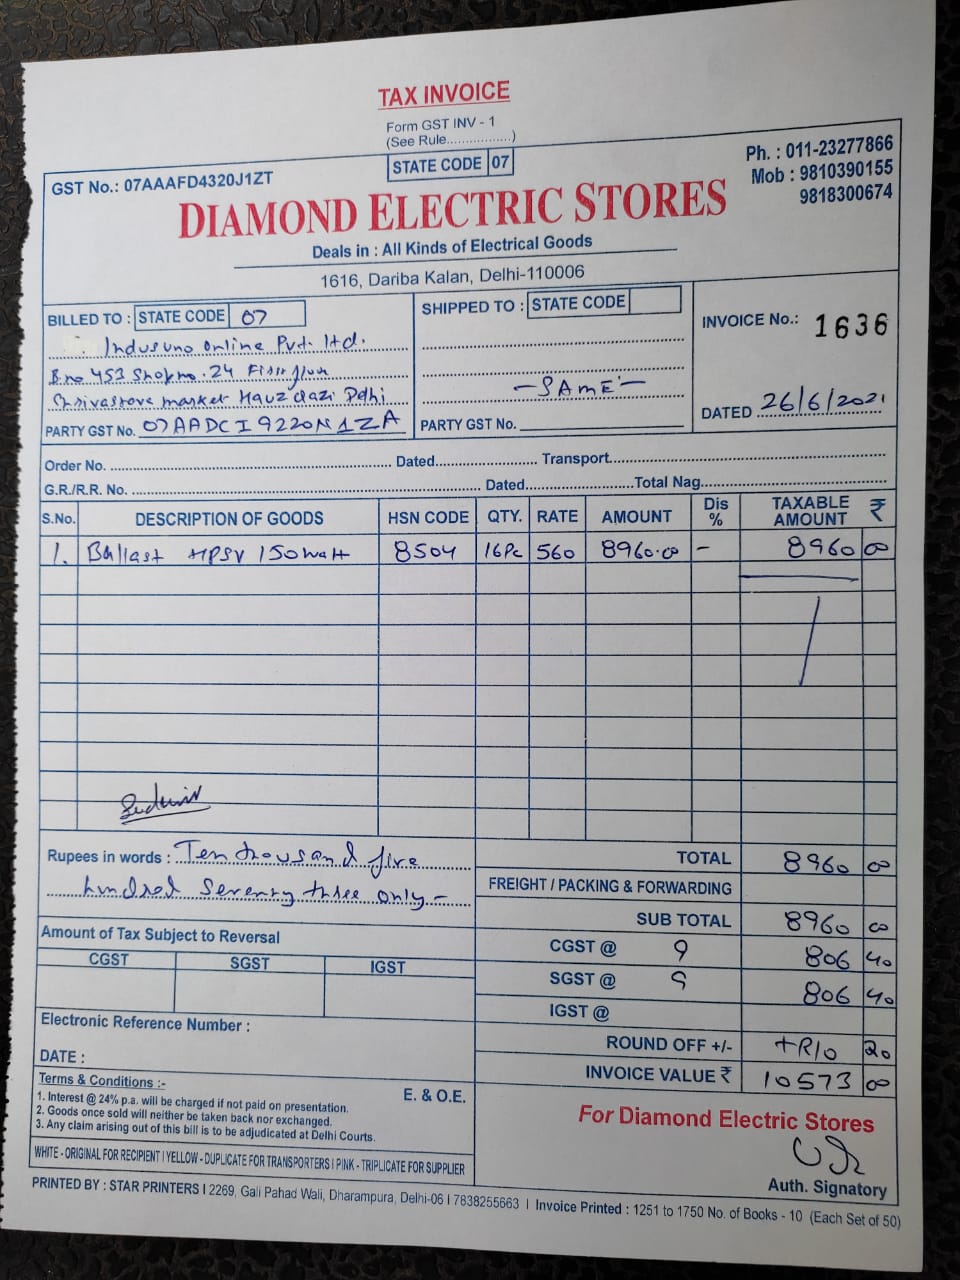 TAX INVOICE
Form GST INV - 1
(See Rule.................)
STATE CODE 07
GST No.: 07AAAFD4320J1ZT
Ph. : 011-23277866
Mob : 9810390155
9818300674
DIAMOND ELECTRIC STORES
Deals in : All Kinds of Electrical Goods
1616, Dariba Kalan, Delhi-110006
BILLED TO : STATE CODE 07
Indusuno Online Pvt. ltd.
B no 453 Shop no. 24 First floor
Shrivastava market Hauz Qazi Delhi
PARTY GST No. 07AADCI9220N1ZA
SHIPPED TO : STATE CODE
- SAME -
PARTY GST No.
INVOICE No.: 1636
DATED 26/6/2021
Order No. Dated Transport
G.R./R.R. No. Dated Total Nag
S.No. DESCRIPTION OF GOODS HSN CODE QTY. RATE AMOUNT Dis % TAXABLE AMOUNT ₹
1. Ballast HPSV 150 watt 8504 16Pc 560 8960.00 - 8960 00
Rupees in words : Ten thousand five
hundred seventy three only -
TOTAL 8960 00
FREIGHT / PACKING & FORWARDING
SUB TOTAL 8960 00
CGST @ 9 806 40
SGST @ 9 806 40
IGST @
ROUND OFF +/- +R/o 20
INVOICE VALUE ₹ 10573 00
Amount of Tax Subject to Reversal
CGST SGST IGST
Electronic Reference Number :
DATE :
Terms & Conditions :- E. & O.E.
1. Interest @ 24% p.a. will be charged if not paid on presentation.
2. Goods once sold will neither be taken back nor exchanged.
3. Any claim arising out of this bill is to be adjudicated at Delhi Courts.
WHITE - ORIGINAL FOR RECIPIENT I YELLOW - DUPLICATE FOR TRANSPORTERS I PINK - TRIPLICATE FOR SUPPLIER
For Diamond Electric Stores
Auth. Signatory
PRINTED BY : STAR PRINTERS I 2269, Gali Pahad Wali, Dharampura, Delhi-06 I 7838255663 I Invoice Printed : 1251 to 1750 No. of Books - 10 (Each Set of 50)